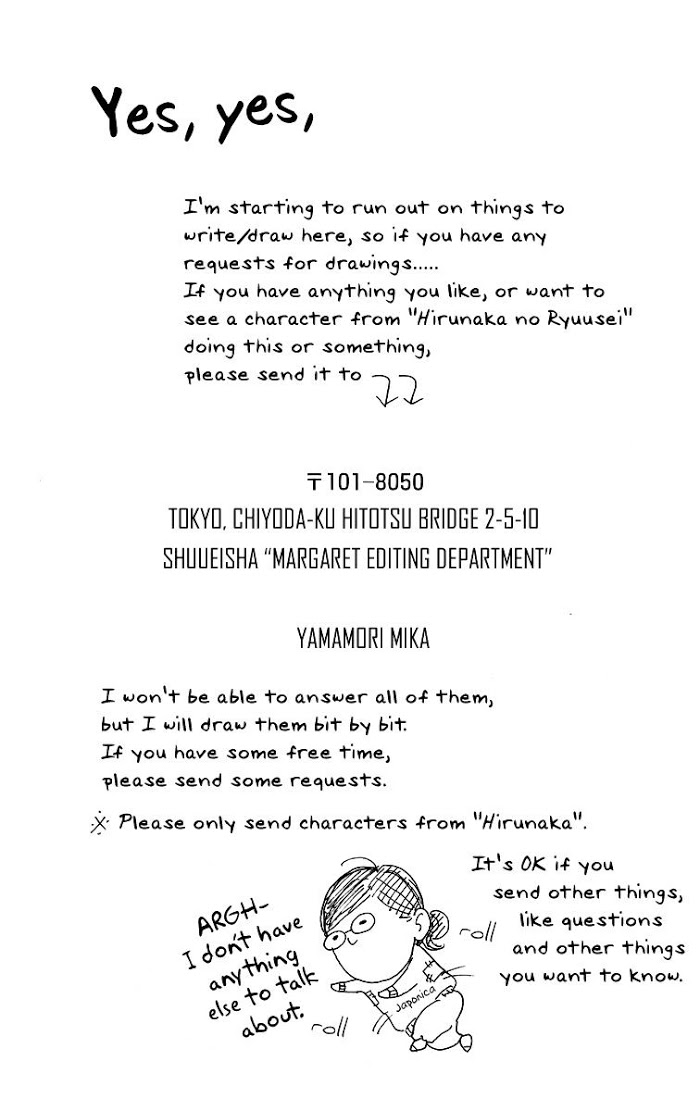 Yes, yes,
I'm starting to run out on things to
write/draw here, so if you have any
requests for drawings.....
If you have anything you like, or want to
see a character from "Hirunaka no Ryuusei"
doing this or something,
please send it to
〒101-8050
TOKYO, CHIYODA-KU HITOTSU BRIDGE 2-5-10
SHUUEISHA "MARGARET EDITING DEPARTMENT"
YAMAMORI MIKA
I won't be able to answer all of them,
but I will draw them bit by bit.
If you have some free time,
please send some requests.
※ Please only send characters from "Hirunaka".
It's OK if you
send other things,
like questions
and other things
you want to know.
ARGH-
I don't have
anything
else to talk
about.
roll
Japonica
roll